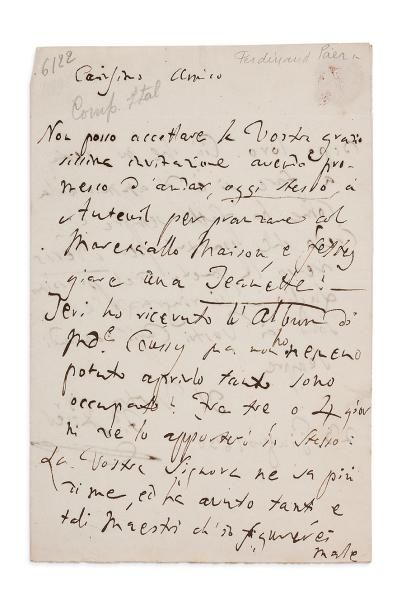 6/22
Ferdinand Päer
Comp. Ital
Carissimo Amico
Non posso accettare la Vostra grazio
sissima invitazione avendo pro
messo d'andar, oggi stesso, a
Auteuil per pranzare col
Maresciallo Maison, e festeg
giare una Jeanette! —
Jeri ho ricevuto l'Album di
Md.e Coussy ma non ho nemeno
potuto aprirlo tanto sono
occupato! Fra tre o 4 gior
ni ve lo apporterò io stesso:
La Vostra Signora ne sa più
di me, ed ha avuto tanti e
tali Maestri ch'io figurerei
male